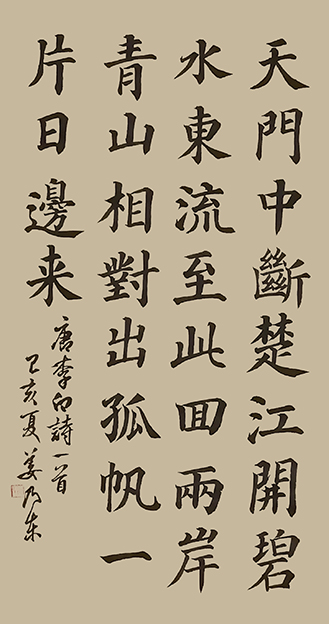 天門中斷楚江開碧
水東流至此回兩岸
青山相對出孤帆一
片日邊来
唐李白詩一首
乙亥夏姜乃東